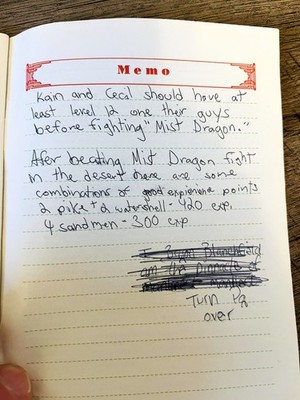 Memo
Kain and Cecil should have at
least level 12 one their guys
before fighting "Mist Dragon."
Afer beating Mist Dragon fight
in the desert there are some
combinations of good experience points
2 pike + 2 watershell - 420 exp.
4 sandmen - 300 exp
Turn
over